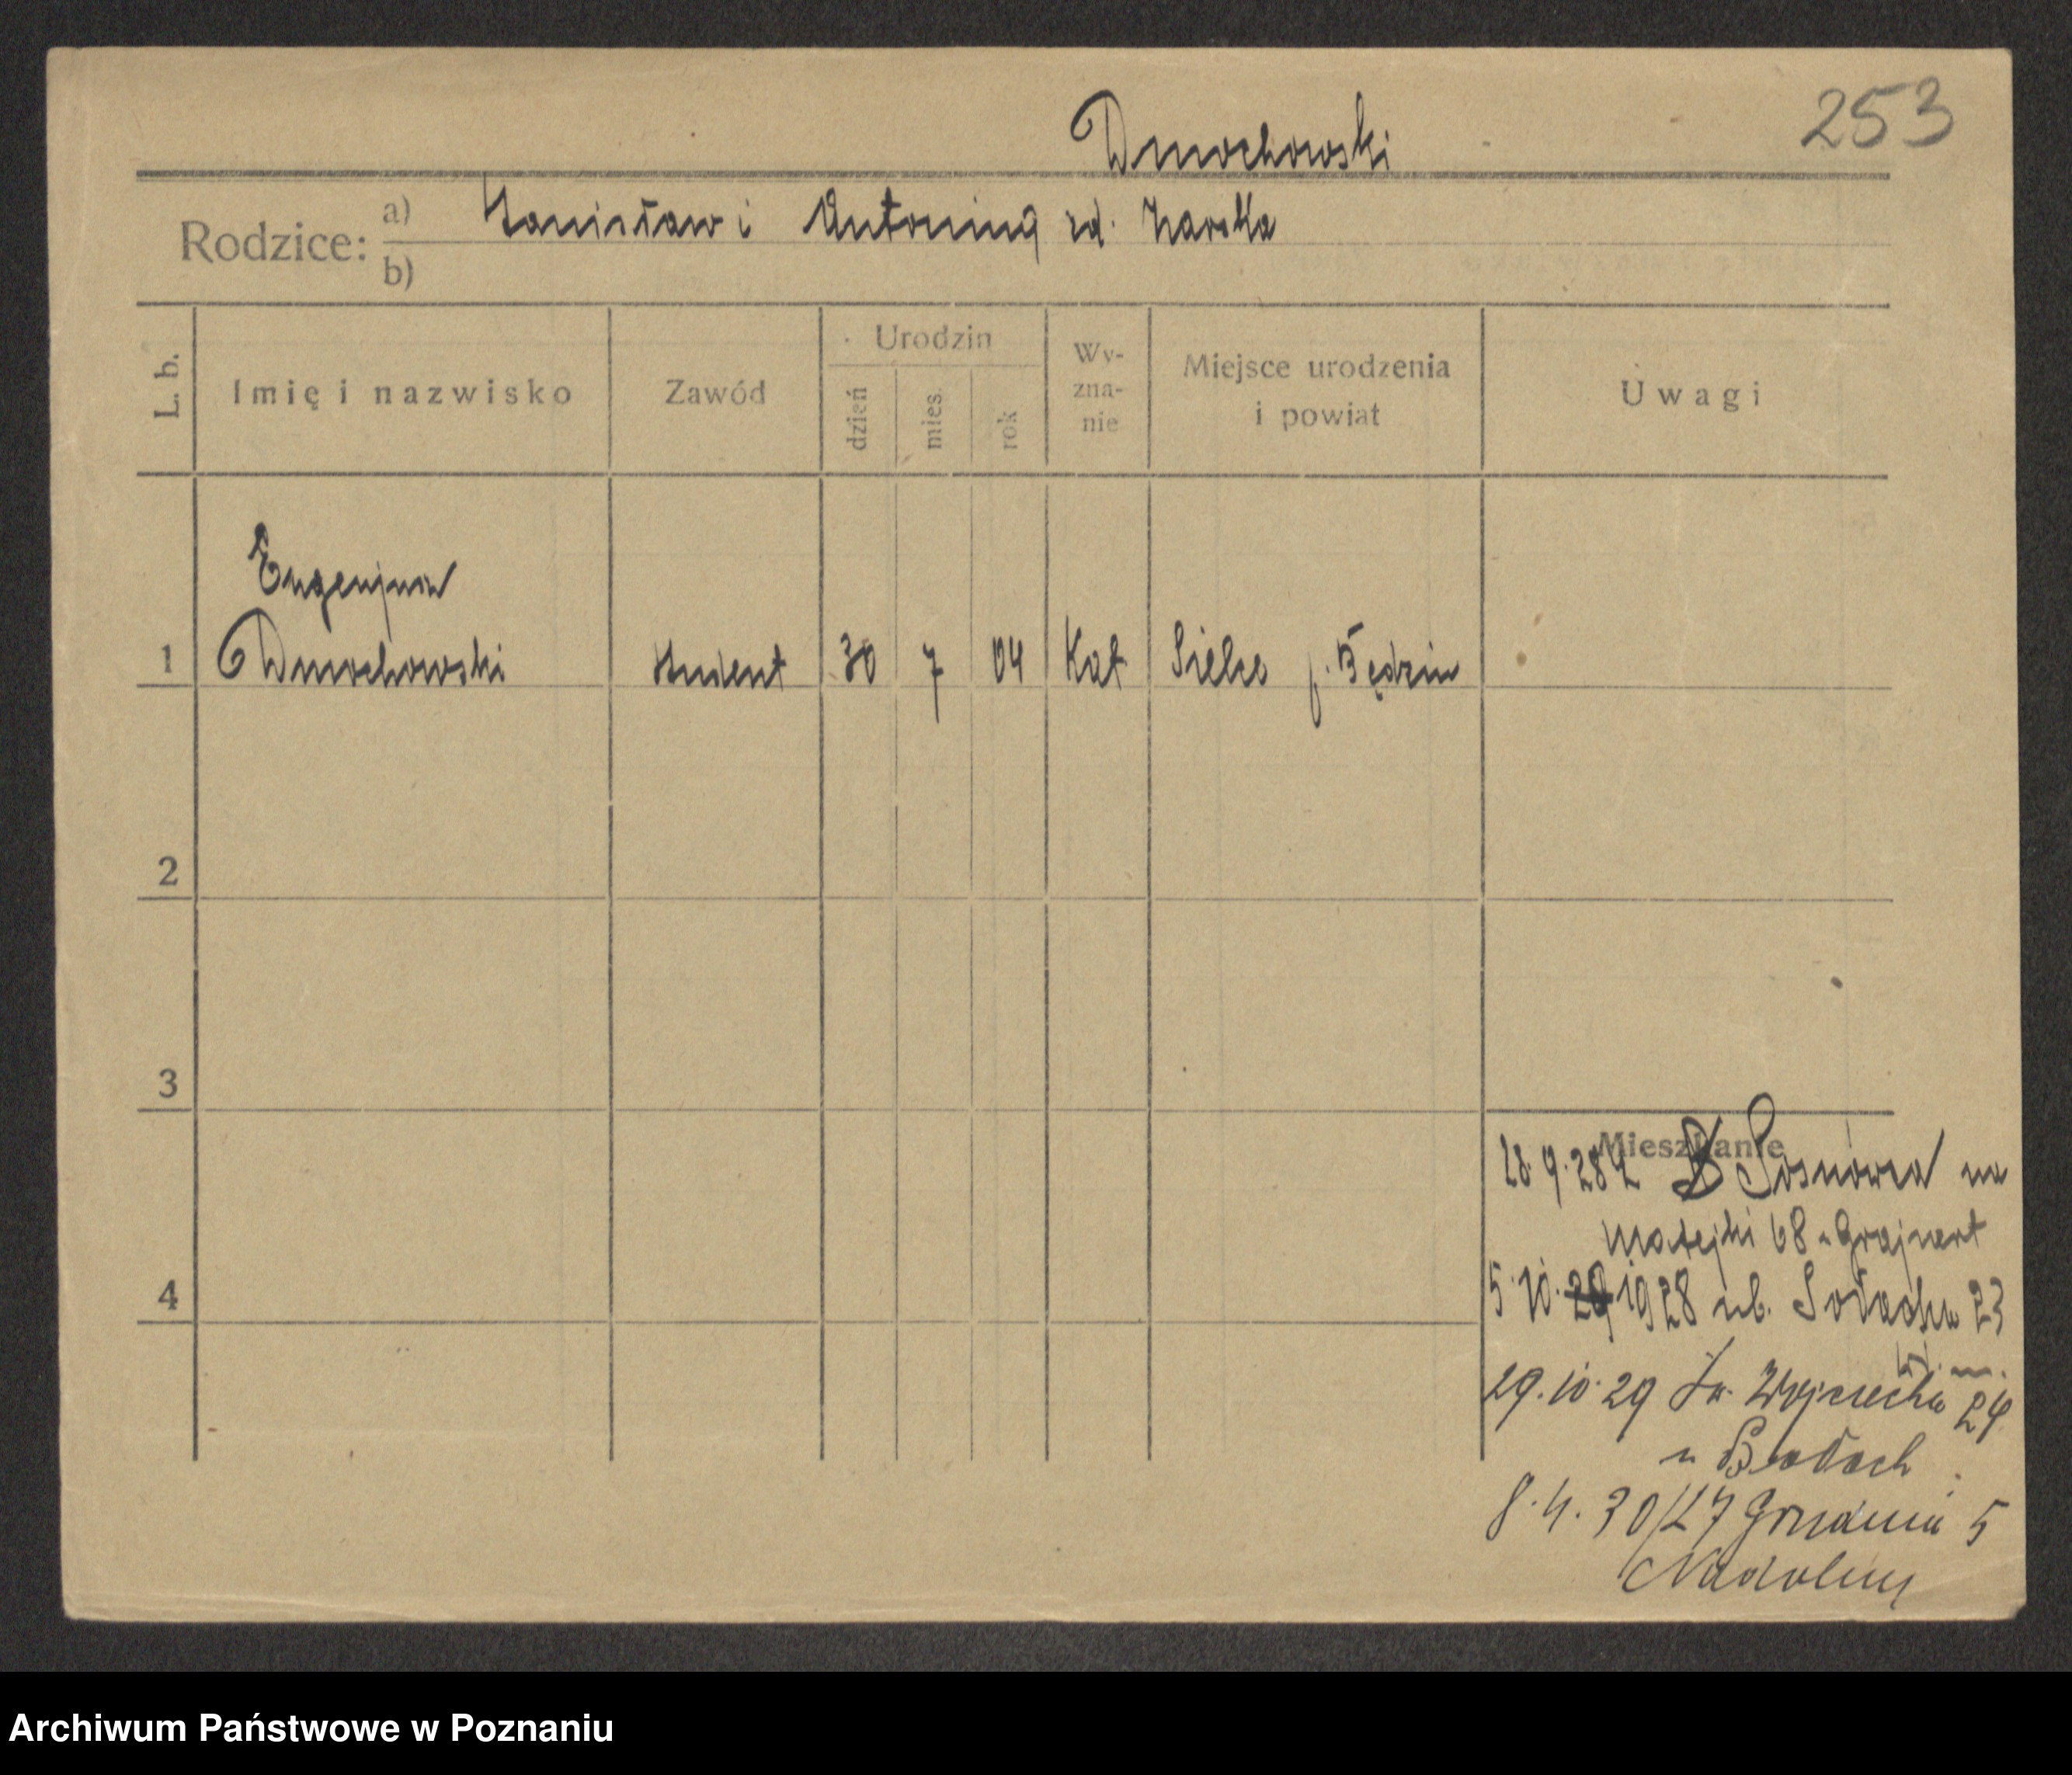 253
Dmochowski
Rodzice: a) Stanisław i Antonina zd.
b)
L. b. Imię i nazwisko Zawód Urodzin dzień mies. rok Wy-zna-nie Miejsce urodzenia i powiat Uwagi
Eugenjusz
1 Dmochowski student 30 7 04 Kat Sielce p. Będzin
2
3
Mieszkanie
28.9.28 z Sosnowca na
Matejki 68 u Grajnert
5.10. 1928 ul. Sołacka 23
4
29.10.29 Św. Wojciecha 24
u
8.4.30/27 Grudnia 5
Nadolny
Archiwum Państwowe w Poznaniu